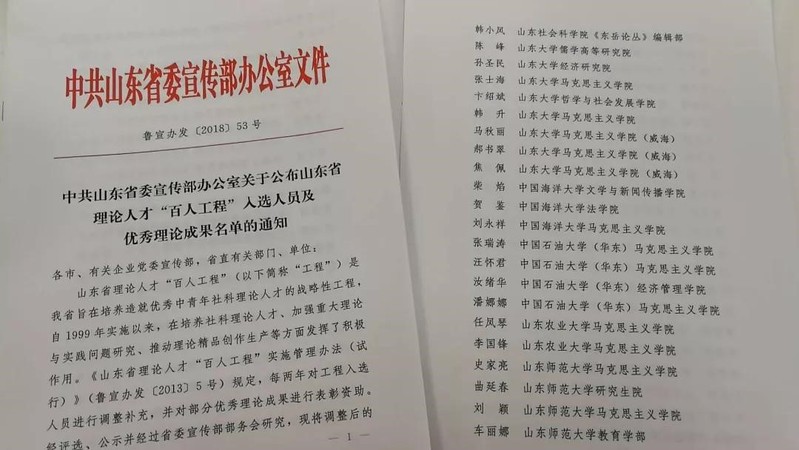 中共山东省委宣传部办公室文件
鲁宣办发〔2018〕53号
中共山东省委宣传部办公室关于公布山东省
理论人才“百人工程”入选人员及
优秀理论成果名单的通知
各市、有关企业党委宣传部，省直有关部门、单位：
山东省理论人才“百人工程”（以下简称“工程”）是
我省旨在培养造就优秀中青年社科理论人才的战略性工程，
自1999年实施以来，在培养社科理论人才、加强重大理论
与实践问题研究、推动理论精品创作生产等方面发挥了积极
作用。《山东省理论人才“百人工程”实施管理办法（试
行）》（鲁宣办发〔2013〕5号）规定，每两年对工程入选
人员进行调整补充，并对部分优秀理论成果进行表彰资助。
经评选、公示并经过省委宣传部部务会研究，现将调整后的
— 1 —
韩小凤 山东社会科学院《东岳论丛》编辑部
陈峰 山东大学儒学高等研究院
孙圣民 山东大学经济研究院
张士海 山东大学马克思主义学院
卞绍斌 山东大学哲学与社会发展学院
韩升 山东大学马克思主义学院
马秋丽 山东大学马克思主义学院（威海）
郝书翠 山东大学马克思主义学院（威海）
焦佩 山东大学马克思主义学院（威海）
柴焰 中国海洋大学文学与新闻传播学院
贺鉴 中国海洋大学法学院
刘永祥 中国海洋大学马克思主义学院
张瑞涛 中国石油大学（华东）马克思主义学院
汪怀君 中国石油大学（华东）马克思主义学院
汝绪华 中国石油大学（华东）经济管理学院
潘娜娜 中国石油大学（华东）马克思主义学院
任凤琴 山东农业大学马克思主义学院
李国锋 山东农业大学马克思主义学院
史家亮 山东师范大学马克思主义学院
曲延春 山东师范大学研究生院
刘颖 山东师范大学马克思主义学院
车丽娜 山东师范大学教育学部